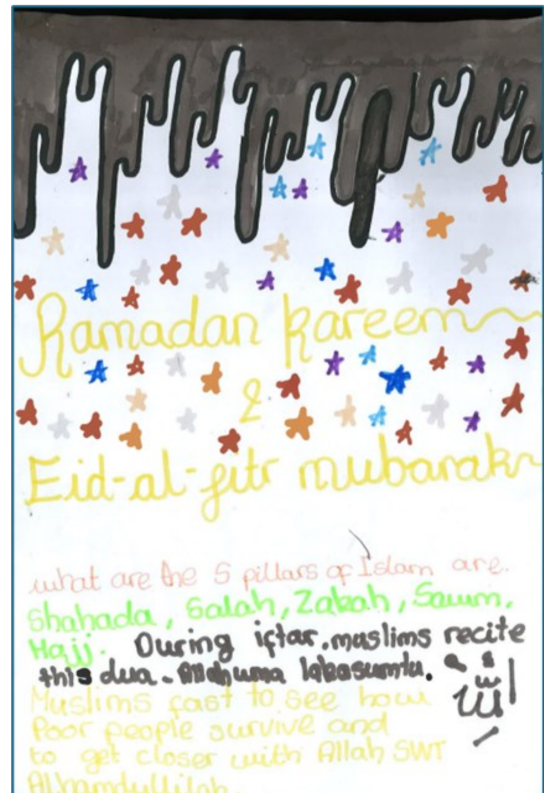 Ramadan kareem
&
Eid-al-fitr mubarak
what are the 5 pillars of Islam are.
Shahada, Salah, Zakah, Sawm,
Hajj. During iftar, muslims recite
this dua - Allahuma lakasumtu.
Muslims fast to see how
Poor people survive and
to get closer with Allah SWT
Alhamdullilah.